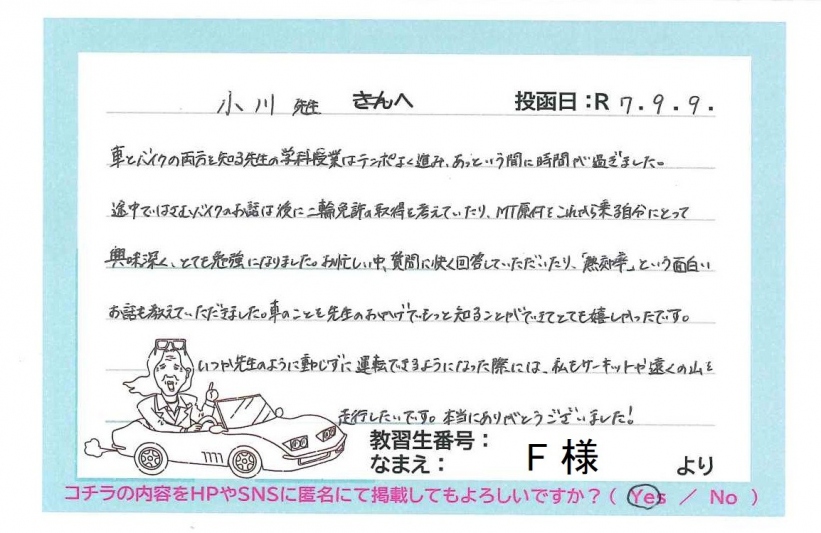 小川 先生 さんへ 投函日:R 7.9.9.
車とバイクの両方を知る先生の学科授業はテンポよく進み、あっという間に時間が過ぎました。
途中ではさむバイクのお話は後に二輪免許の取得を考えていたり、MT原付をこれから乗る自分にとって
興味深く、とても勉強になりました。お忙しい中、質問に快く回答していただいたり、「熱効率」という面白い
お話も教えていただきました。車のことを先生のおかげでもっと知ることができてとても嬉しかったです。
いつか先生のように動じずに運転できるようになった際には、私もサーキットや遠くの山を
走行したいです。本当にありがとうございました!
教習生番号:
なまえ: F 様 より
コチラの内容をHPやSNSに匿名にて掲載してもよろしいですか?( Yes / No )